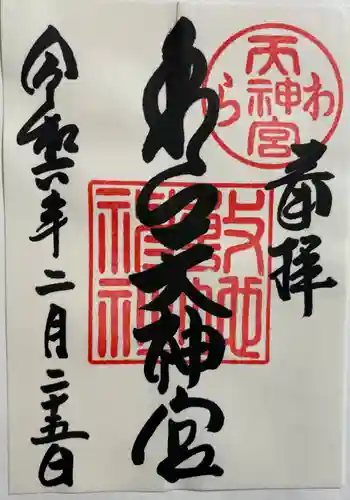 奉拝
わら天神宮
わら
天神宮
敷地
神社
令和六年二月二十五日